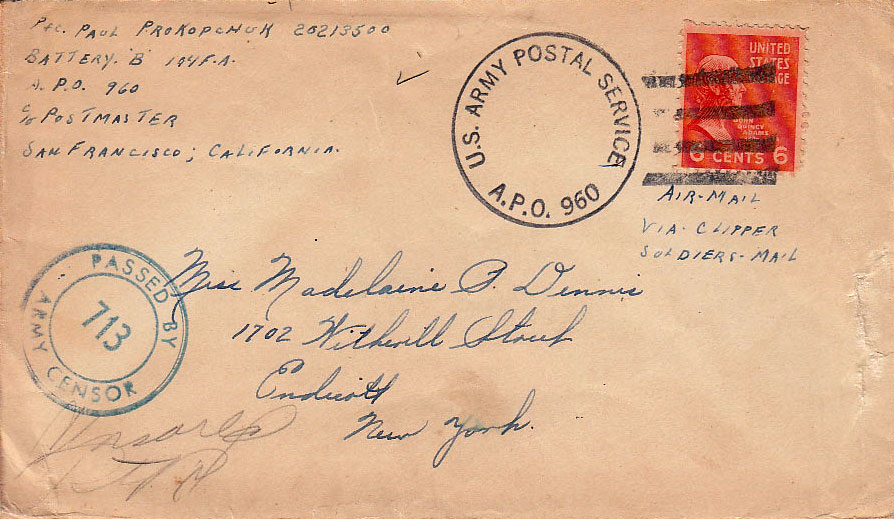 Pfc. PAUL PROKOPCHUK 20213500
BATTERY "B" 104 F.A.
A.P.O. 960
c/o POSTMASTER
SAN FRANCISCO, CALIFORNIA.
U.S. ARMY POSTAL SERVICE
A.P.O. 960
UNITED
STATES
JOHN
QUINCY
ADAMS
6 CENTS 6
AIR-MAIL
VIA-CLIPPER
SOLDIERS-MAIL
PASSED BY
713
ARMY CENSOR
Miss Madelaine P. Dennis
1702 Witherill Street
Endicott
New York.